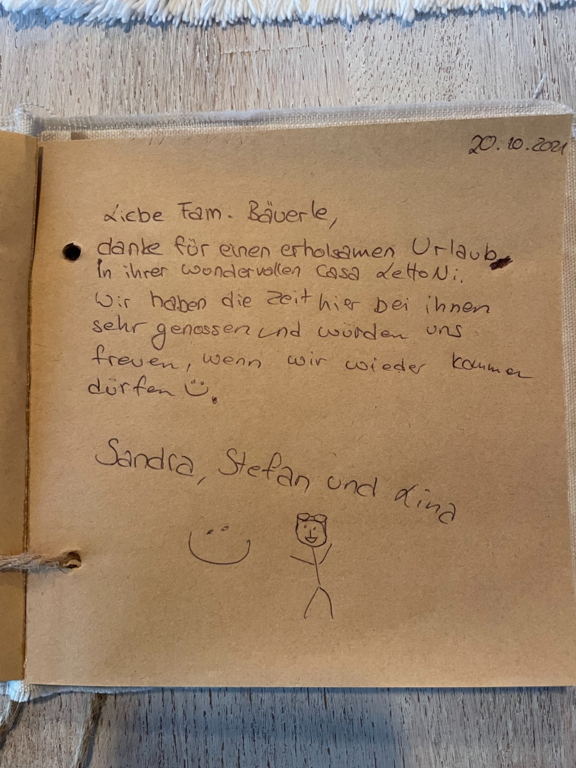 20.10.2021
Liebe Fam. Bäuerle,
danke für einen erholsamen Urlaub
in ihrer wundervollen Casa LettoNi.
Wir haben die Zeit hier bei ihnen
sehr genossen und würden uns
freuen, wenn wir wieder kommen
dürfen ☺.
Sandra, Stefan und Lina